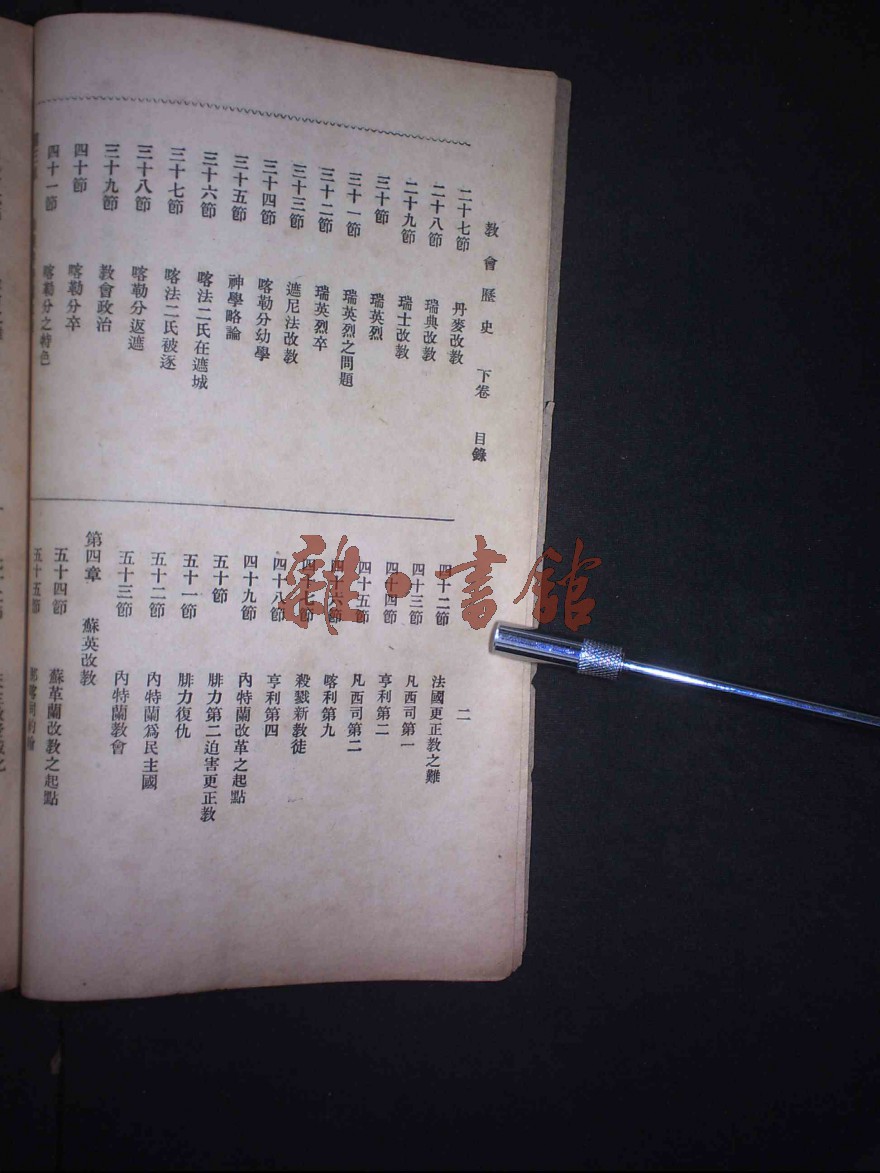 教會歷史 下卷 目錄
二
二十七節 丹麥改教
二十八節 瑞典改教
二十九節 瑞士改教
三十節 瑞英烈
三十一節 瑞英烈之問題
三十二節 瑞英烈卒
三十三節 遮尼法改教
三十四節 喀勒分幼學
三十五節 神學略論
三十六節 喀法二氏在遮城
三十七節 喀法二氏被逐
三十八節 喀勒分返遮
三十九節 教會政治
四十節 喀勒分卒
四十一節 喀勒分之特色
四十二節 法國更正教之難
四十三節 凡西司第一
四十四節 亨利第二
四十五節 凡西司第二
四十六節 喀利第九
四十七節 殺戮新教徒
四十八節 亨利第四
四十九節 內特蘭改革之起點
五十節 腓力第二迫害更正教
五十一節 腓力復仇
五十二節 內特蘭爲民主國
五十三節 內特蘭教會
第四章 蘇英改教
五十四節 蘇革蘭改教之起點
五十五節
雜·書館